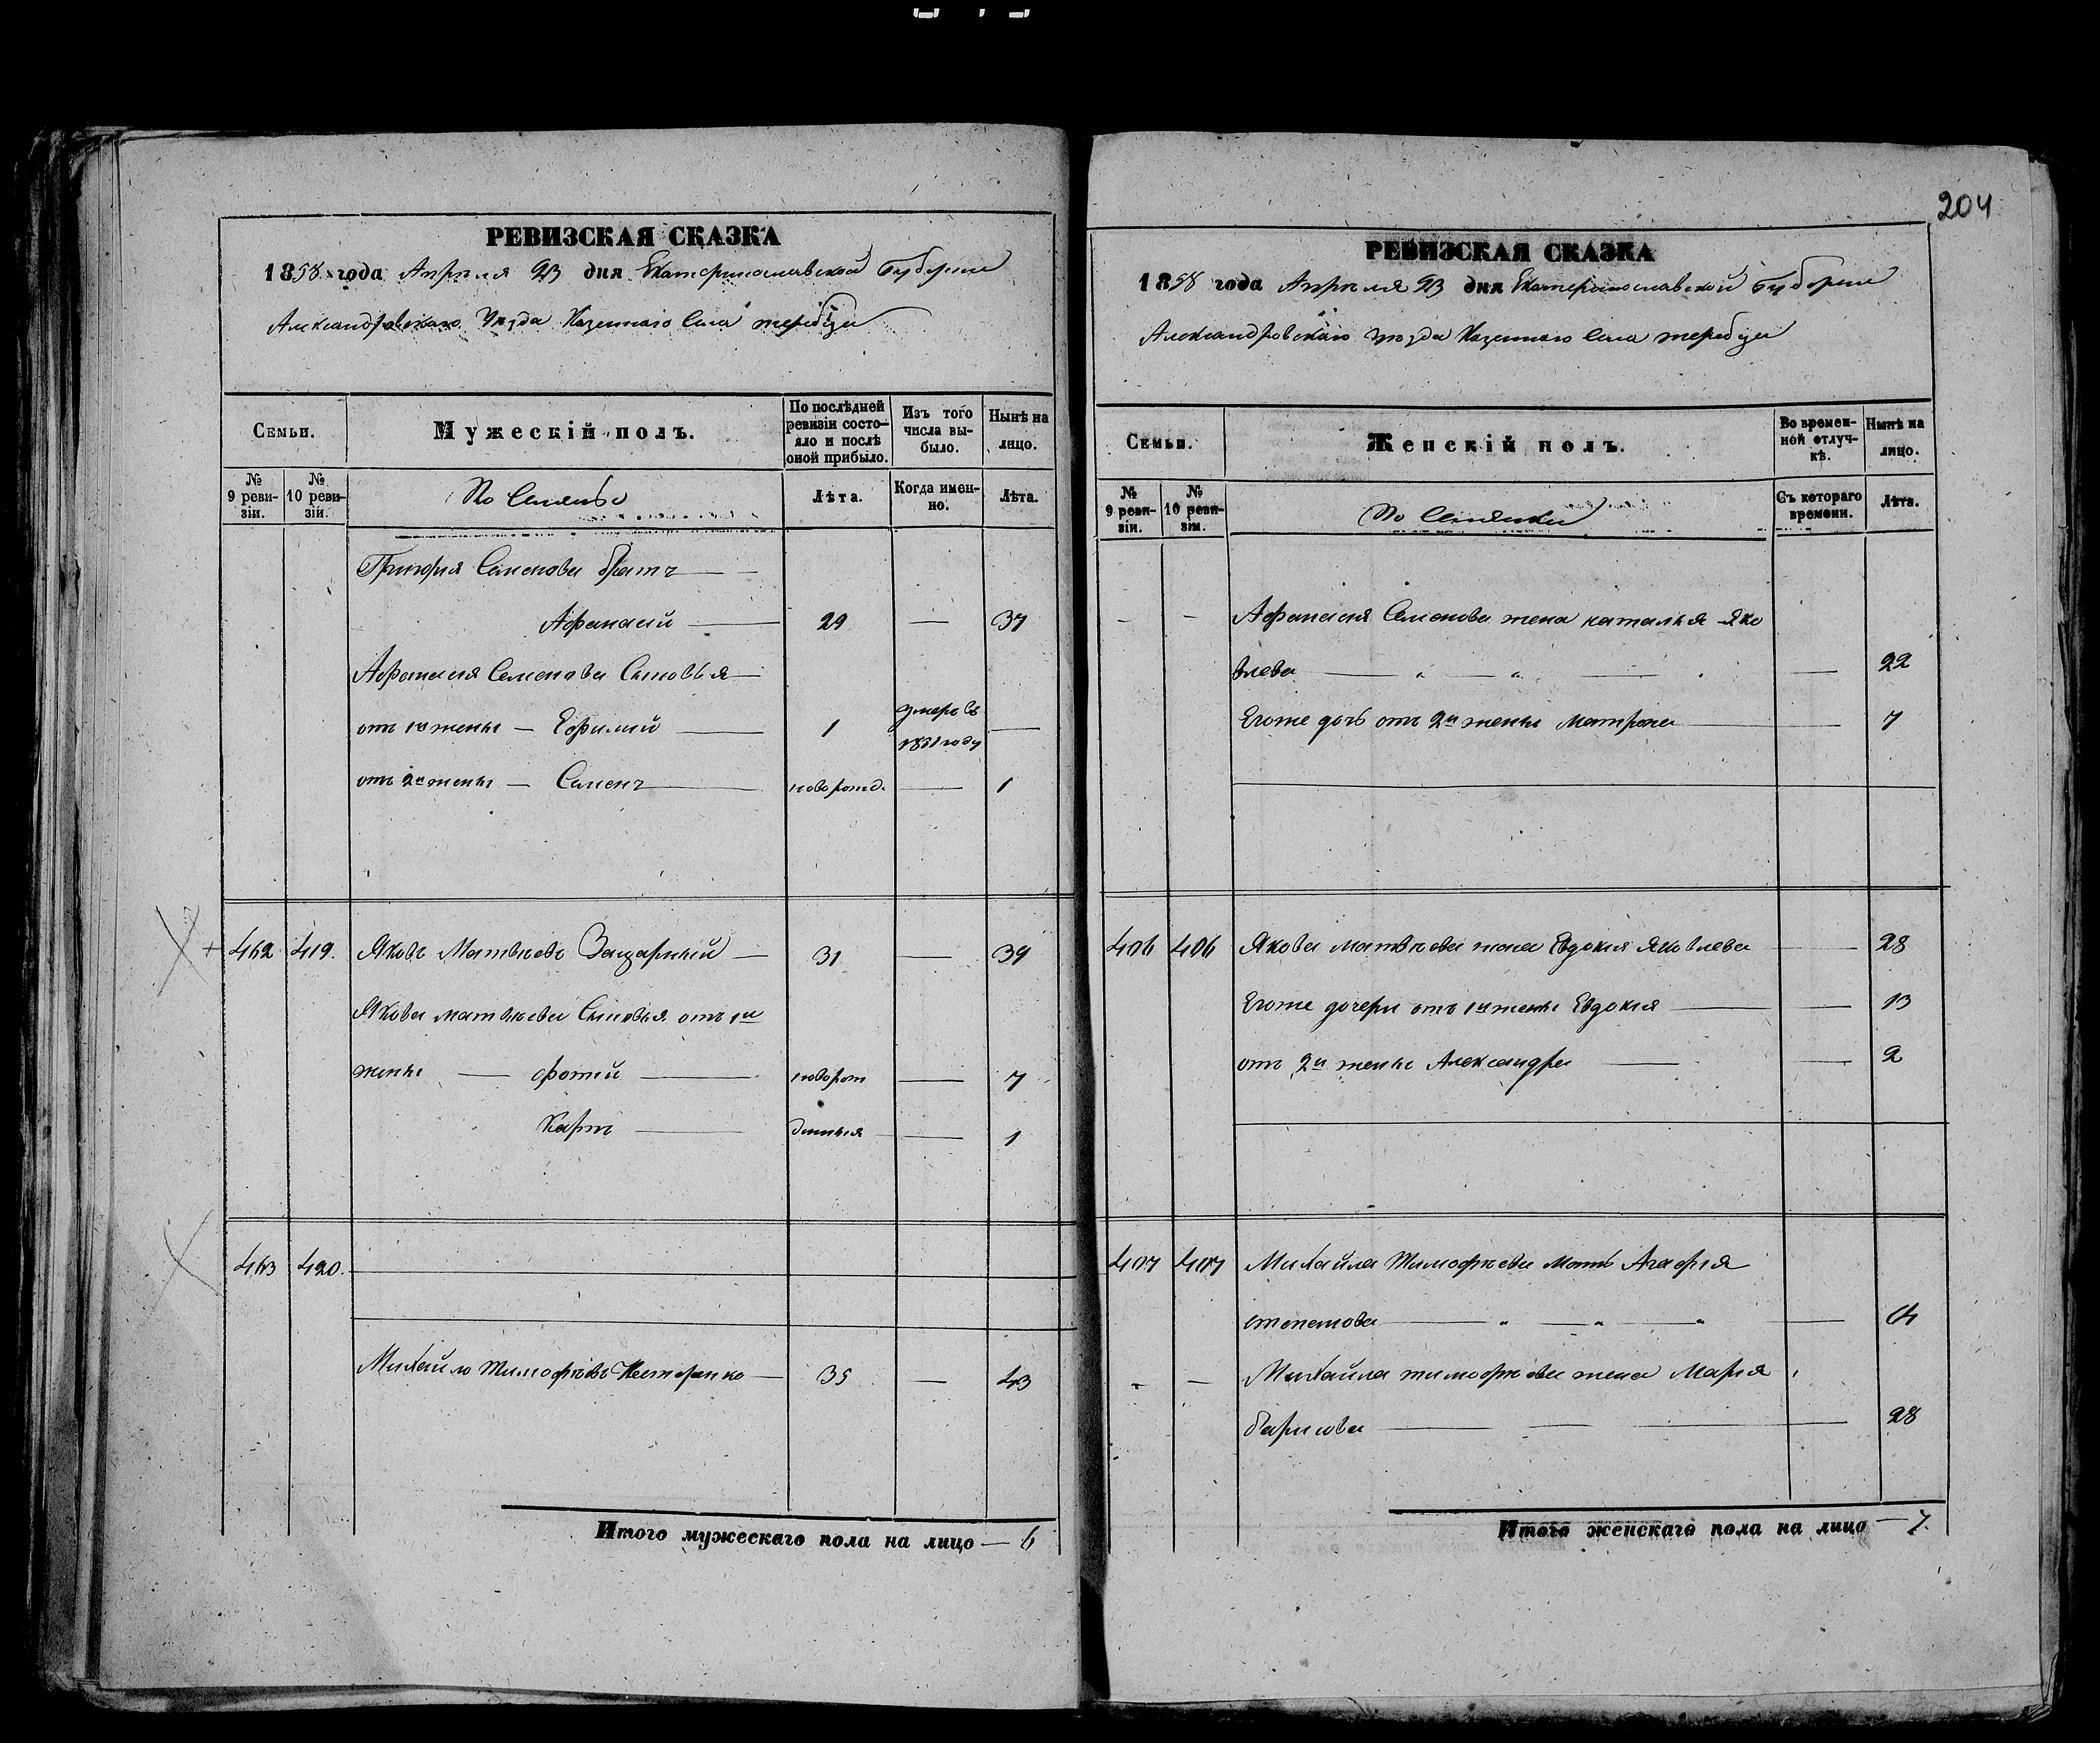 204
РЕВИЗСКАЯ СКАЗКА
1858 года Апреля 23 дня Екатеринославской Губернии
Александровскаго Уезда Казеннаго Села
Семьи.
Мужескій полъ.
По послѣдней ревизіи состояло и послѣ оной прибыло.
Изъ того числа выбыло.
Нынѣ на лицо.
№ 9 ревизіи.
№ 10 ревизіи.
Лѣта.
Когда именно.
Лѣта.
Григорія Семенова братъ
Афанасій 29 — 37
Афанасия Семенова Сыновья
от 1й жены — Ефимий 1 умеръ въ 1851 году —
отъ 2й жены — Семенъ новорожд. — 1
462 419. Яковъ Матвѣевъ — 31 — 39
Якова матвѣева Сыновья отъ 1й
жены — фотий — новорож — 7
Карпъ — денныя — 1
463 420.
Михайло Тимофѣевъ Нестеренко — 35 — 43
Итого мужескаго пола на лицо — 6
РЕВИЗСКАЯ СКАЗКА
1858 года Апреля 23 дня Екатеринославской Губернии
Александровскаго уезда Казеннаго Села
Семьи.
Женскій полъ.
Во временной отлучкѣ.
Нынѣ на лицо.
№ 9 ревизіи.
№ 10 ревизіи.
Съ котораго времени.
Лѣта.
Афанасия Семенова жена наталья Яко
влева — 22
Егоже дочь отъ 2й жены Матрона — 7
406 406 Якова матвѣева жена Евдокия Яковлева — 28
Егоже дочери отъ 1й жены Евдокия — 13
отъ 2й жены Александра — 2
407 407 Михайла Тимофѣева мать Агафия
Михайла тимофѣева жена Мария
28
Итого женскаго пола на лицо — 7.